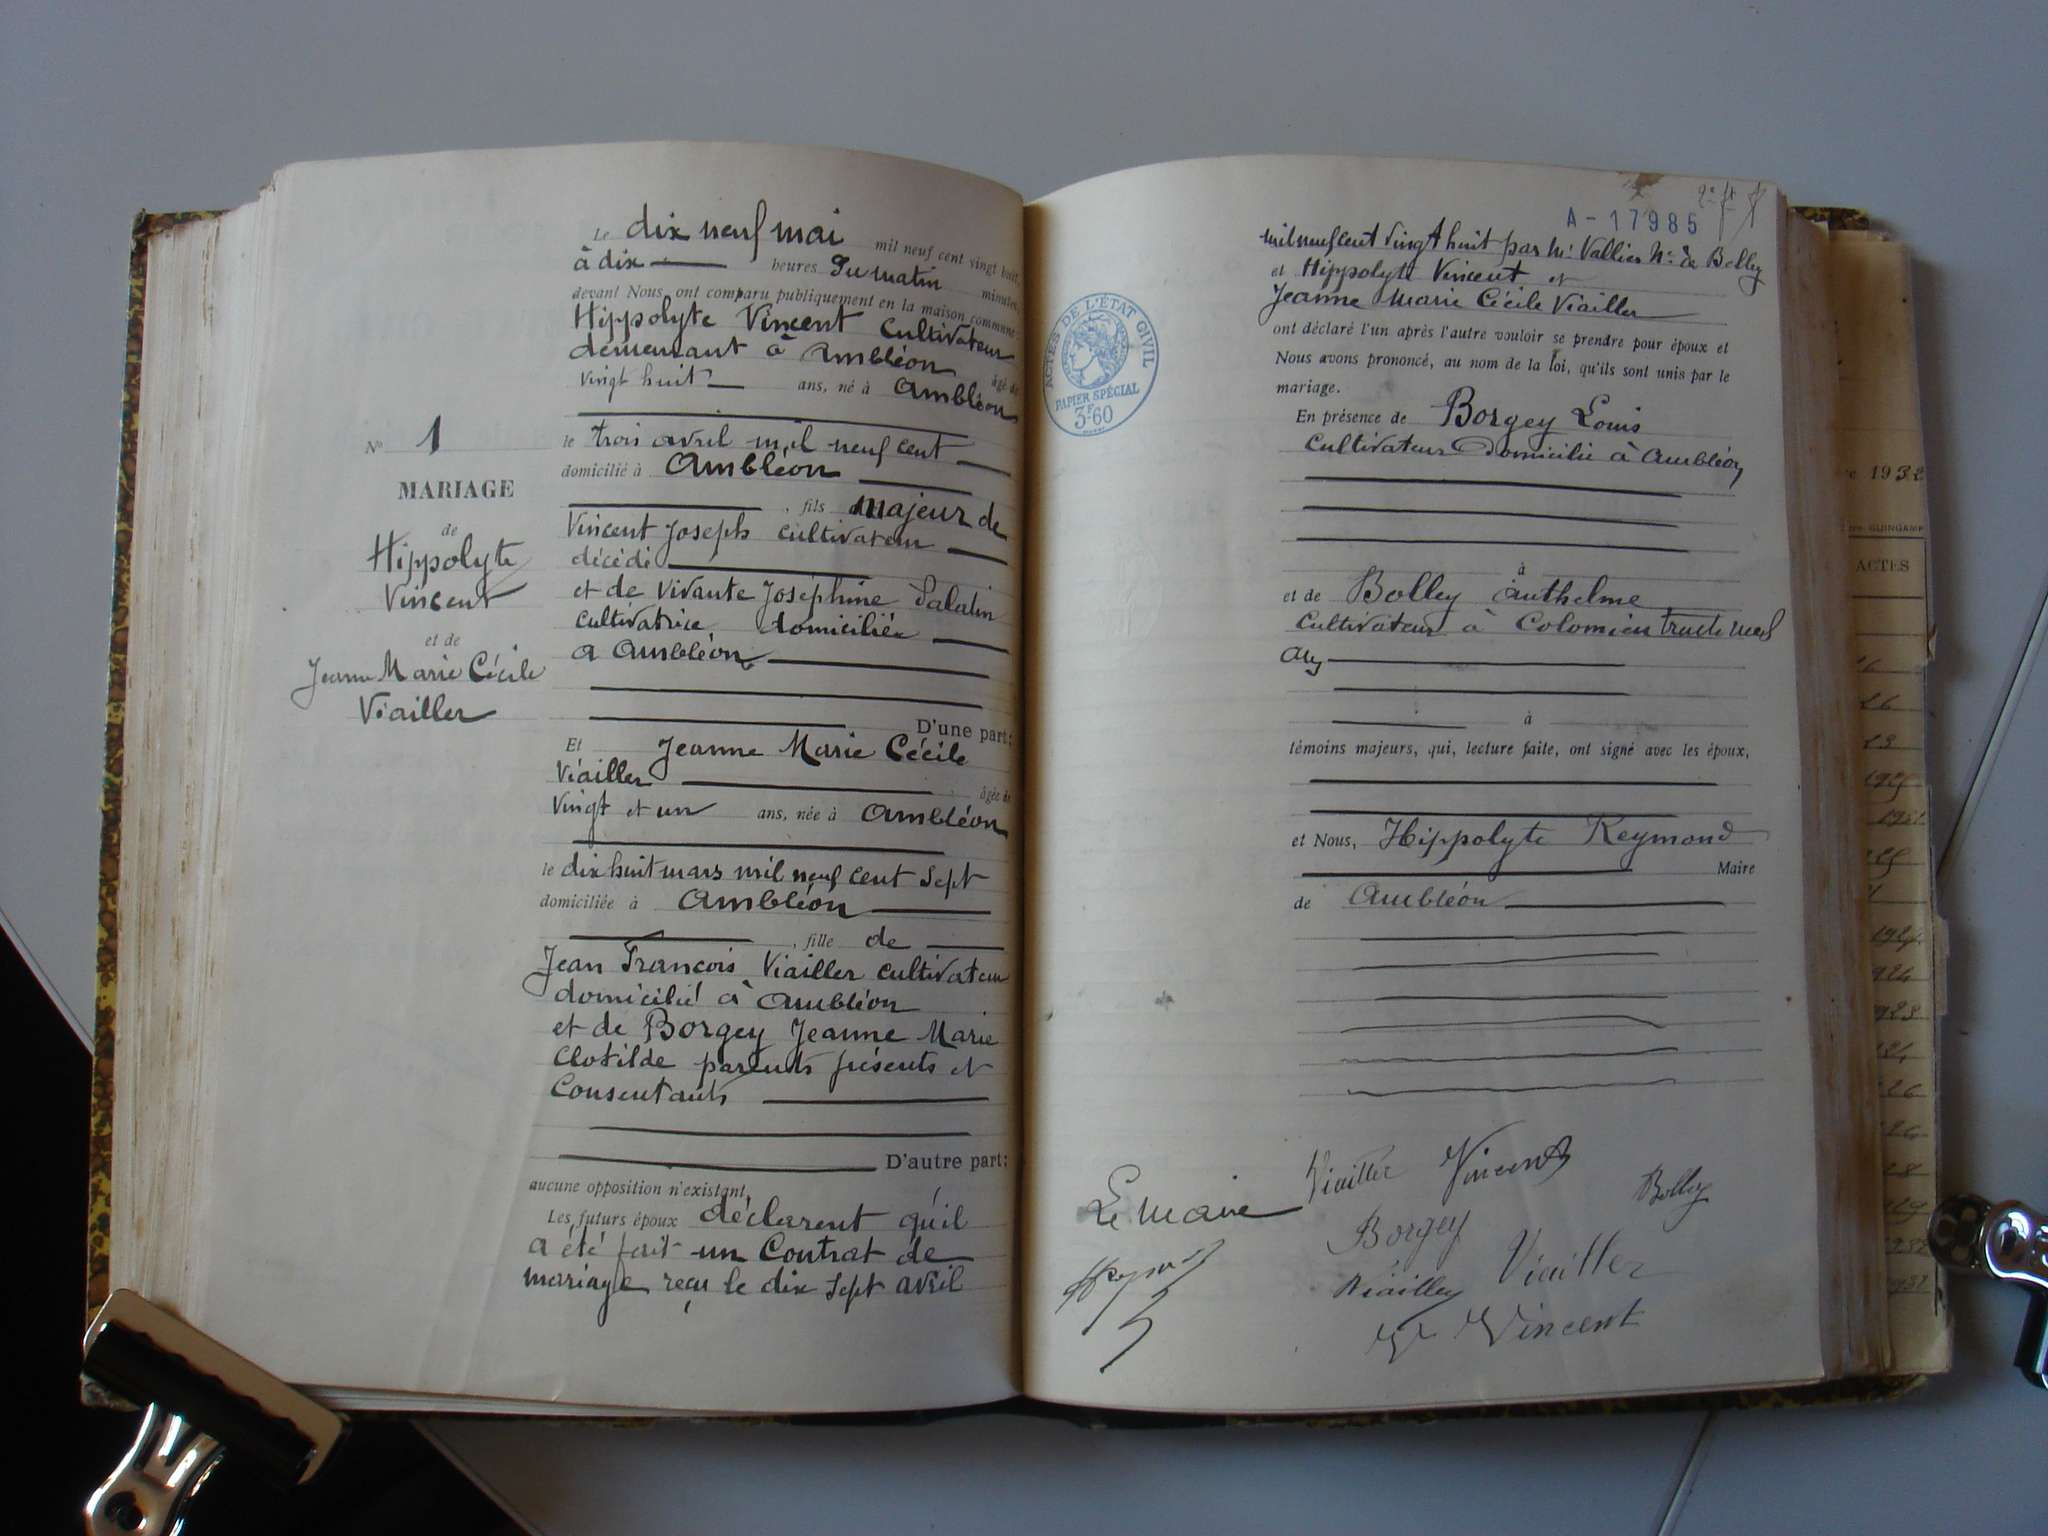 N° 1
MARIAGE
de
Hippolyte
Vincent
et de
Jeanne Marie Cécile
Viailler
Le dix neuf mai mil neuf cent vingt huit,
à dix heures du matin minutes,
devant Nous ont comparu publiquement en la maison commune:
Hippolyte Vincent cultivateur
demeurant à Ambléon âgé de
vingt huit ans, né à Ambléon
le trois avril mil neuf cent
domicilié à Ambléon
, fils majeur de
Vincent Joseph cultivateur
décédé
et de vivante Joséphine
cultivatrice domiciliée
a Ambléon
D'une part;
Et Jeanne Marie Cécile
Viailler âgée de
vingt et un ans, née à Ambléon
le dix huit mars mil neuf cent sept
domiciliée à Ambléon
, fille de
Jean Francois Viailler cultivateur
domicilié à Ambléon
et de Borgey Jeanne Marie
Clotilde parents présents et
Consentants
D'autre part;
aucune opposition n'existant,
Les futurs époux déclarent qu'il
a été fait un Contrat de
mariage reçu le dix sept avril
A-17985
mil neuf cent vingt huit par Mr Vallier Nre à Belley
et Hippolyte Vincent et
Jeanne Marie Cécile Viailler
ont déclaré l'un après l'autre vouloir se prendre pour époux et
Nous avons prononcé, au nom de la loi, qu'ils sont unis par le
mariage.
En présence de Borgey Louis
cultivateur domicilié à Ambléon
à
et de Bolley Anthelme
cultivateur à Colomieu
à
témoins majeurs, qui, lecture faite, ont signé avec les époux,
et Nous, Hippolyte Reymond
Maire
de Ambléon
Le Maire
Viailler Vincent
Borgey Bolley
Viailler Viailler
Vincent
ACTES DE L'ÉTAT CIVIL
PAPIER SPÉCIAL
3F60
1932
GUINGAMP
ACTES